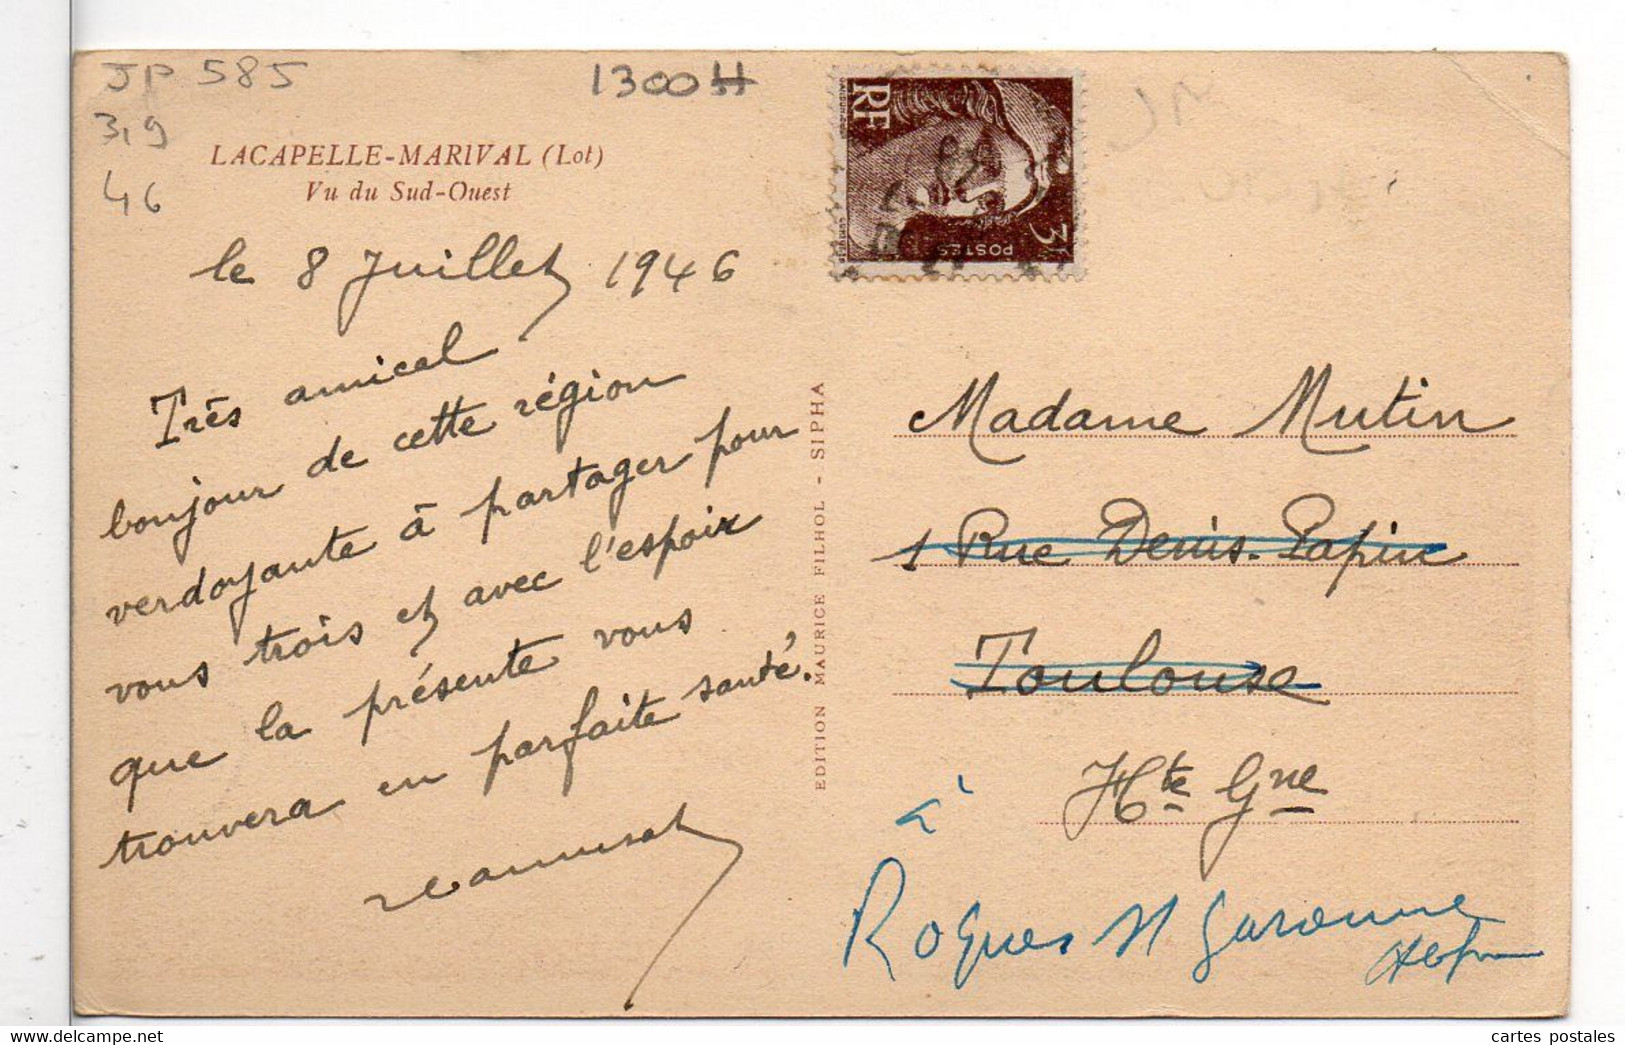 JP 585
1300H
3,9
46
LACAPELLE-MARIVAL (Lot)
Vu du Sud-Ouest
le 8 Juillet 1946
Très amical
bonjour de cette région
verdoyante à partager pour
vous trois et avec l'espoir
que la présente vous
trouvera en parfaite santé.
EDITION MAURICE FILHOL - SIPHA
RF
POSTES
3F
Madame Mutin
1 Rue Denis-Papin
Toulouse
Hte Gne
à
Roques s/ Garonne
cartes postales